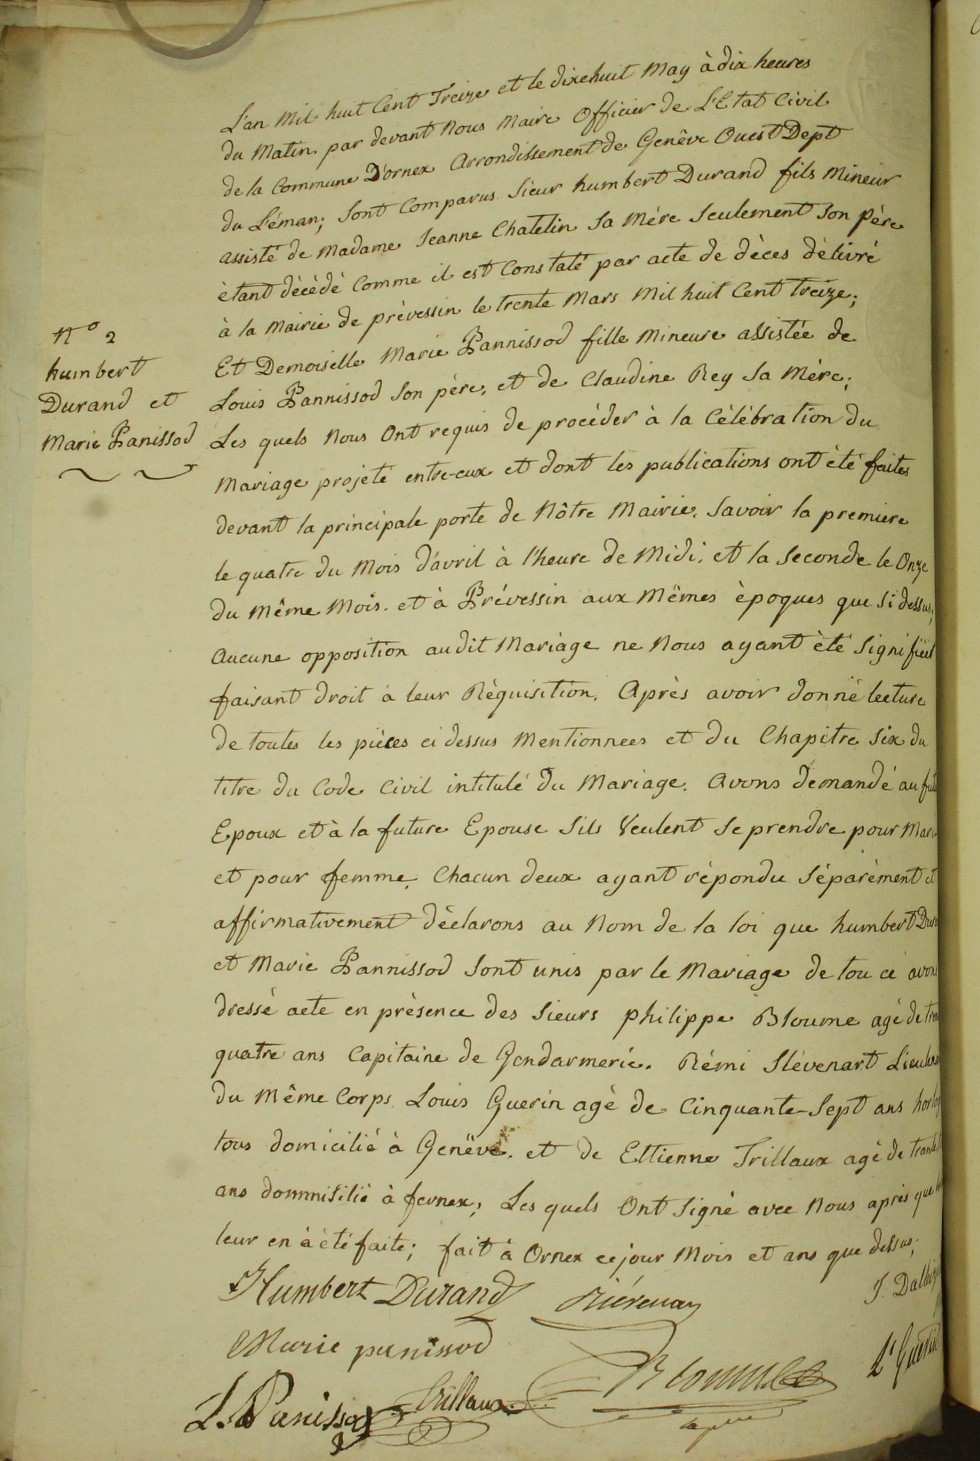 L'an Mil huit Cent Treize et le dixehuit May à dix heures
du Matin par devant Nous Maire Officier de L'Etat Civil
de la Commune D'ornex Arrondissement de Genêve Ouest Dept
du Léman; Sont Comparus Sieur humbert Durand fils Mineur
assisté de Madame Jeanne Chatelin Sa Mére Seulement Son Pére
ètant dècèdè Comme il est Constaté par acte de dèces dèlivrè
à la Mairie de prèvessin le trente Mars Mil huit Cent treize;
Et Demoiselle Marie Pannissod fille Mineure assistée de
Louis Pannissod Son père, et de Claudine Rey Sa Mére;
Les quels Nous Ont requis de procéder à la Célébration du
Mariage projeté entre-eux et dont les publications ont été faites
devant la principale porte de Nôtre Mairie. Savoir la premiere
le quatre du Mois d'avril à l'heure de Midi. et la Seconde le Onze
du Même Mois. et à Prévessin aux Mêmes èpoques que Si dessus,
Aucune opposition audit Mariage ne Nous ayant èté Signifiéé
faisant droit à leur Réquisition. Après avoir donné lecture
de toutes les pièces ci dessus Mentionnees et du Chapitre Six du
titre du Code Civil intitulé Du Mariage. Avons demandé au
Epoux et à la future Epouse Sils Veulent Se prendre pour
et pour femme. Chacun deux ayant répondu Séparément et
affirmativement déclarons au Nom de la loi que humbert
et Marie Pannissod Sont unis par le Mariage de tou cé avons
dressé acte en prèsence des Sieurs philippe Bloume agé de
quatre ans Capitaine de Gendarmerie. Rémi Stévenart
du Même Corps Louis Guerin agè de Cinquante-Sept ans
tous domicilié à Genève. et de Ettienne Trillaux agé de
ans domnisilié à fernex, Les quels Ont Signé avec Nous après que
leur en à été faite; fait à Ornex ce jour Mois et ans que dessus;
N° 2
humbert
Durand et
Marie Panissod
Humbert Durand
Marie panissod
L. Panissod
Trillaux